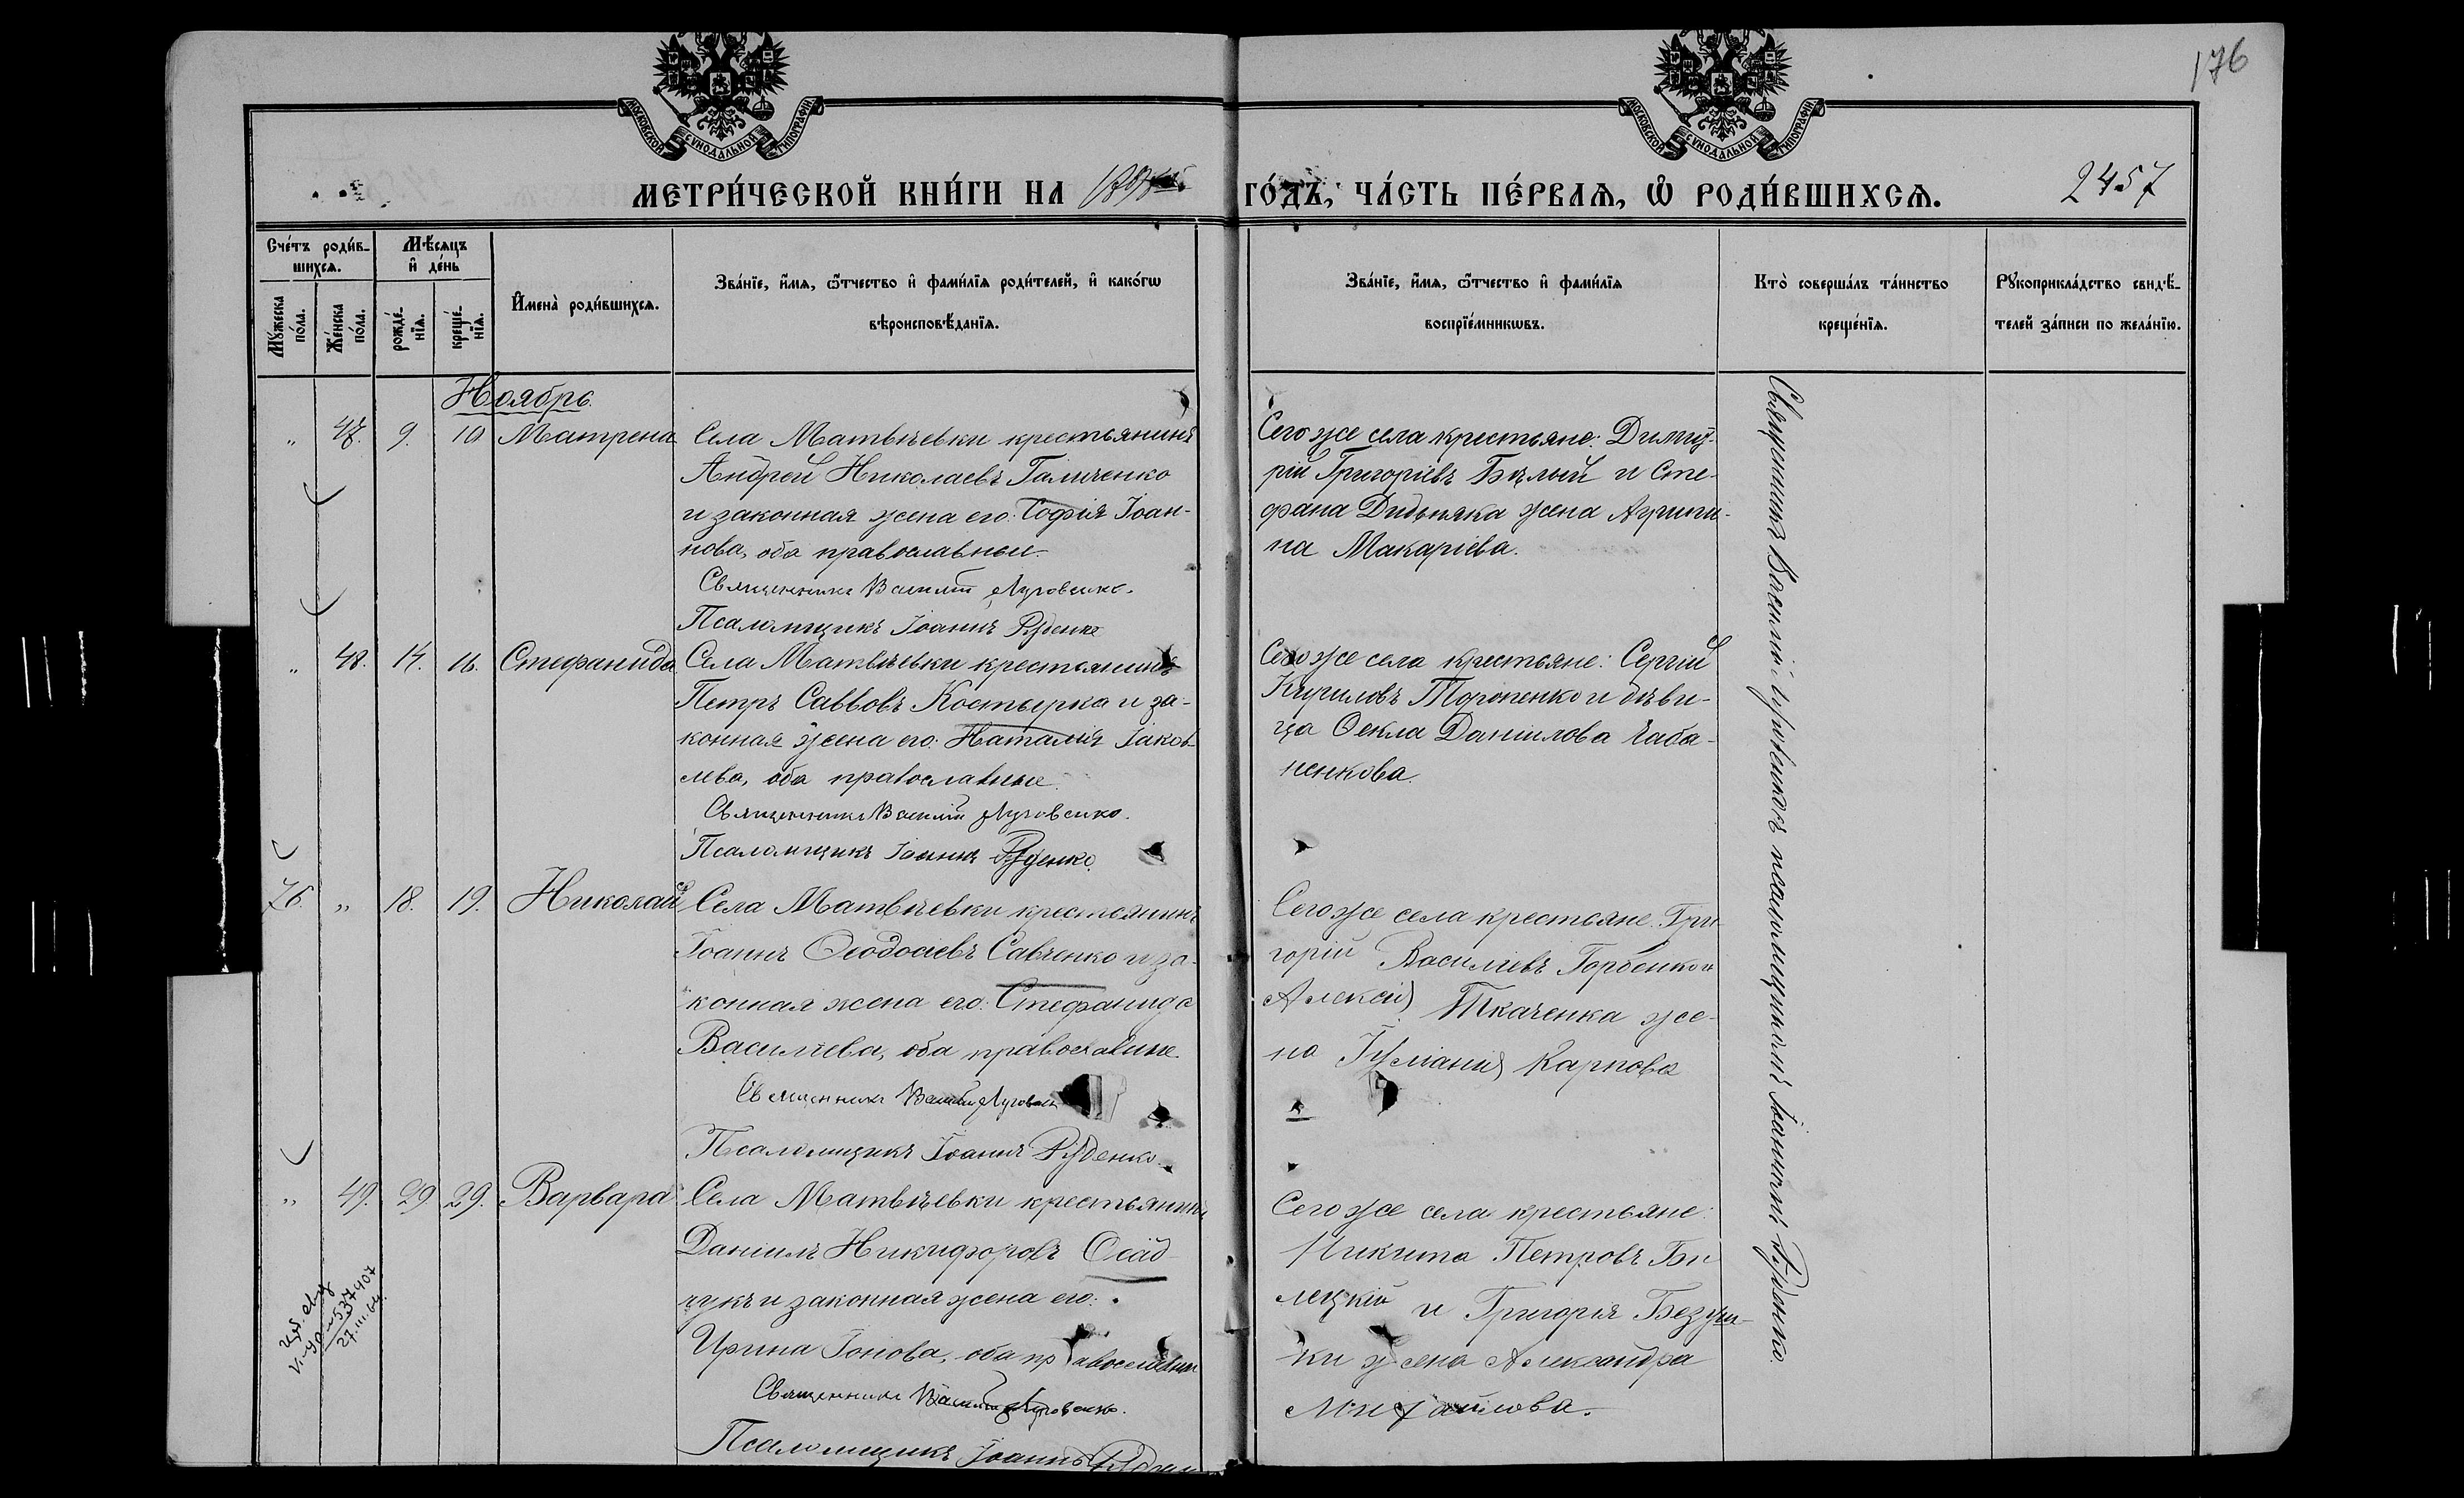 176
МОСКОВСКОЙ СѴНОДАЛЬНОЙ ТИПОГРАФІИ
МОСКОВСКОЙ СѴНОДАЛЬНОЙ ТИПОГРАФІИ
МЕТРИ́ЧЕСКОЙ КНИ́ГИ НА
ГО́ДЪ, ЧА́СТЬ ПЕ́РВАѦ, Ѡ РОДИ́ВШИХСѦ.
2457
Сче́тъ роди́в-
шихсѧ.
Мꙋ́жеска по́ла.
Же́нска по́ла.
Мѣ́сѧцъ
и҆ де́нь
рожде́-
нїѧ.
креще́-
нїѧ.
И҆мена̀ роди́вшихсѧ.
Зва́нїе, и҆́мѧ, ѻ҆́тчество и҆ фами́лїѧ роди́телей, и҆ како́гѡ
вѣроисповѣ́данїѧ.
Зва́нїе, и҆́мѧ, ѻ҆́тчество и҆ фами́лїѧ
воспрїе́мникѡвъ.
Кто̀ соверша́лъ та́инство
креще́нїѧ.
Рꙋкоприкла́дство свидѣ́-
телей за́писи по жела́нїю.
Ноябрь.
„ 47. 9. 10 Матрена
Села Матвѣевки крестьянинъ
Андрей Николаевъ Галиченко
и законная жена его: Софія Іоан-
нова, оба православные.
Священникъ Василій Луговенко.
Псаломщикъ Іоаннъ Руденко
Сего же села крестьяне: Димит-
рій Григоріевъ Бѣлый и Сте-
фана Дидыняка жена Агрипи-
на Макаріева.
„ 48. 14. 16. Стефанида
Села Матвѣевки крестьянинъ
Петръ Саввовъ Костырка и за-
конная жена его: Наталія Іаков-
лева, оба православные.
Священникъ Василій Луговенко.
Псаломщикъ Іоаннъ Руденко.
Сего же села крестьяне: Сергій
Кириловъ Торопенко и дѣви-
ца Ѳекла Даніилова Чаба-
ненкова.
76. „ 18. 19. Николай
Села Матвѣевки крестьянинъ
Іоаннъ Ѳеодосіевъ Савченко и за-
конная жена его: Стефанида
Василіева, оба православные.
Священникъ Василій Луговенко
Псаломщикъ Іоаннъ Руденко.
Сего же села крестьяне: Гри-
горій Василіевъ Горбенко и
Алексія Ткаченка же-
на Іуліанія Карпова
„ 49. 29 29. Варвара
Села Матвѣевки крестьянинъ
Даніилъ Никифоровъ Осад-
чукъ и законная жена его:
Ирина Іонова, оба православные
Священникъ Василій Луговенко.
Псаломщикъ Іоаннъ Руденко
Сего же села крестьяне:
Никита Петровъ Би-
лецкій и Григорія Безуш-
ки жена Александра
Михайлова.
Священникъ Василій Луговенко съ псаломщикомъ Іоанномъ Руденко.
27.III.64.